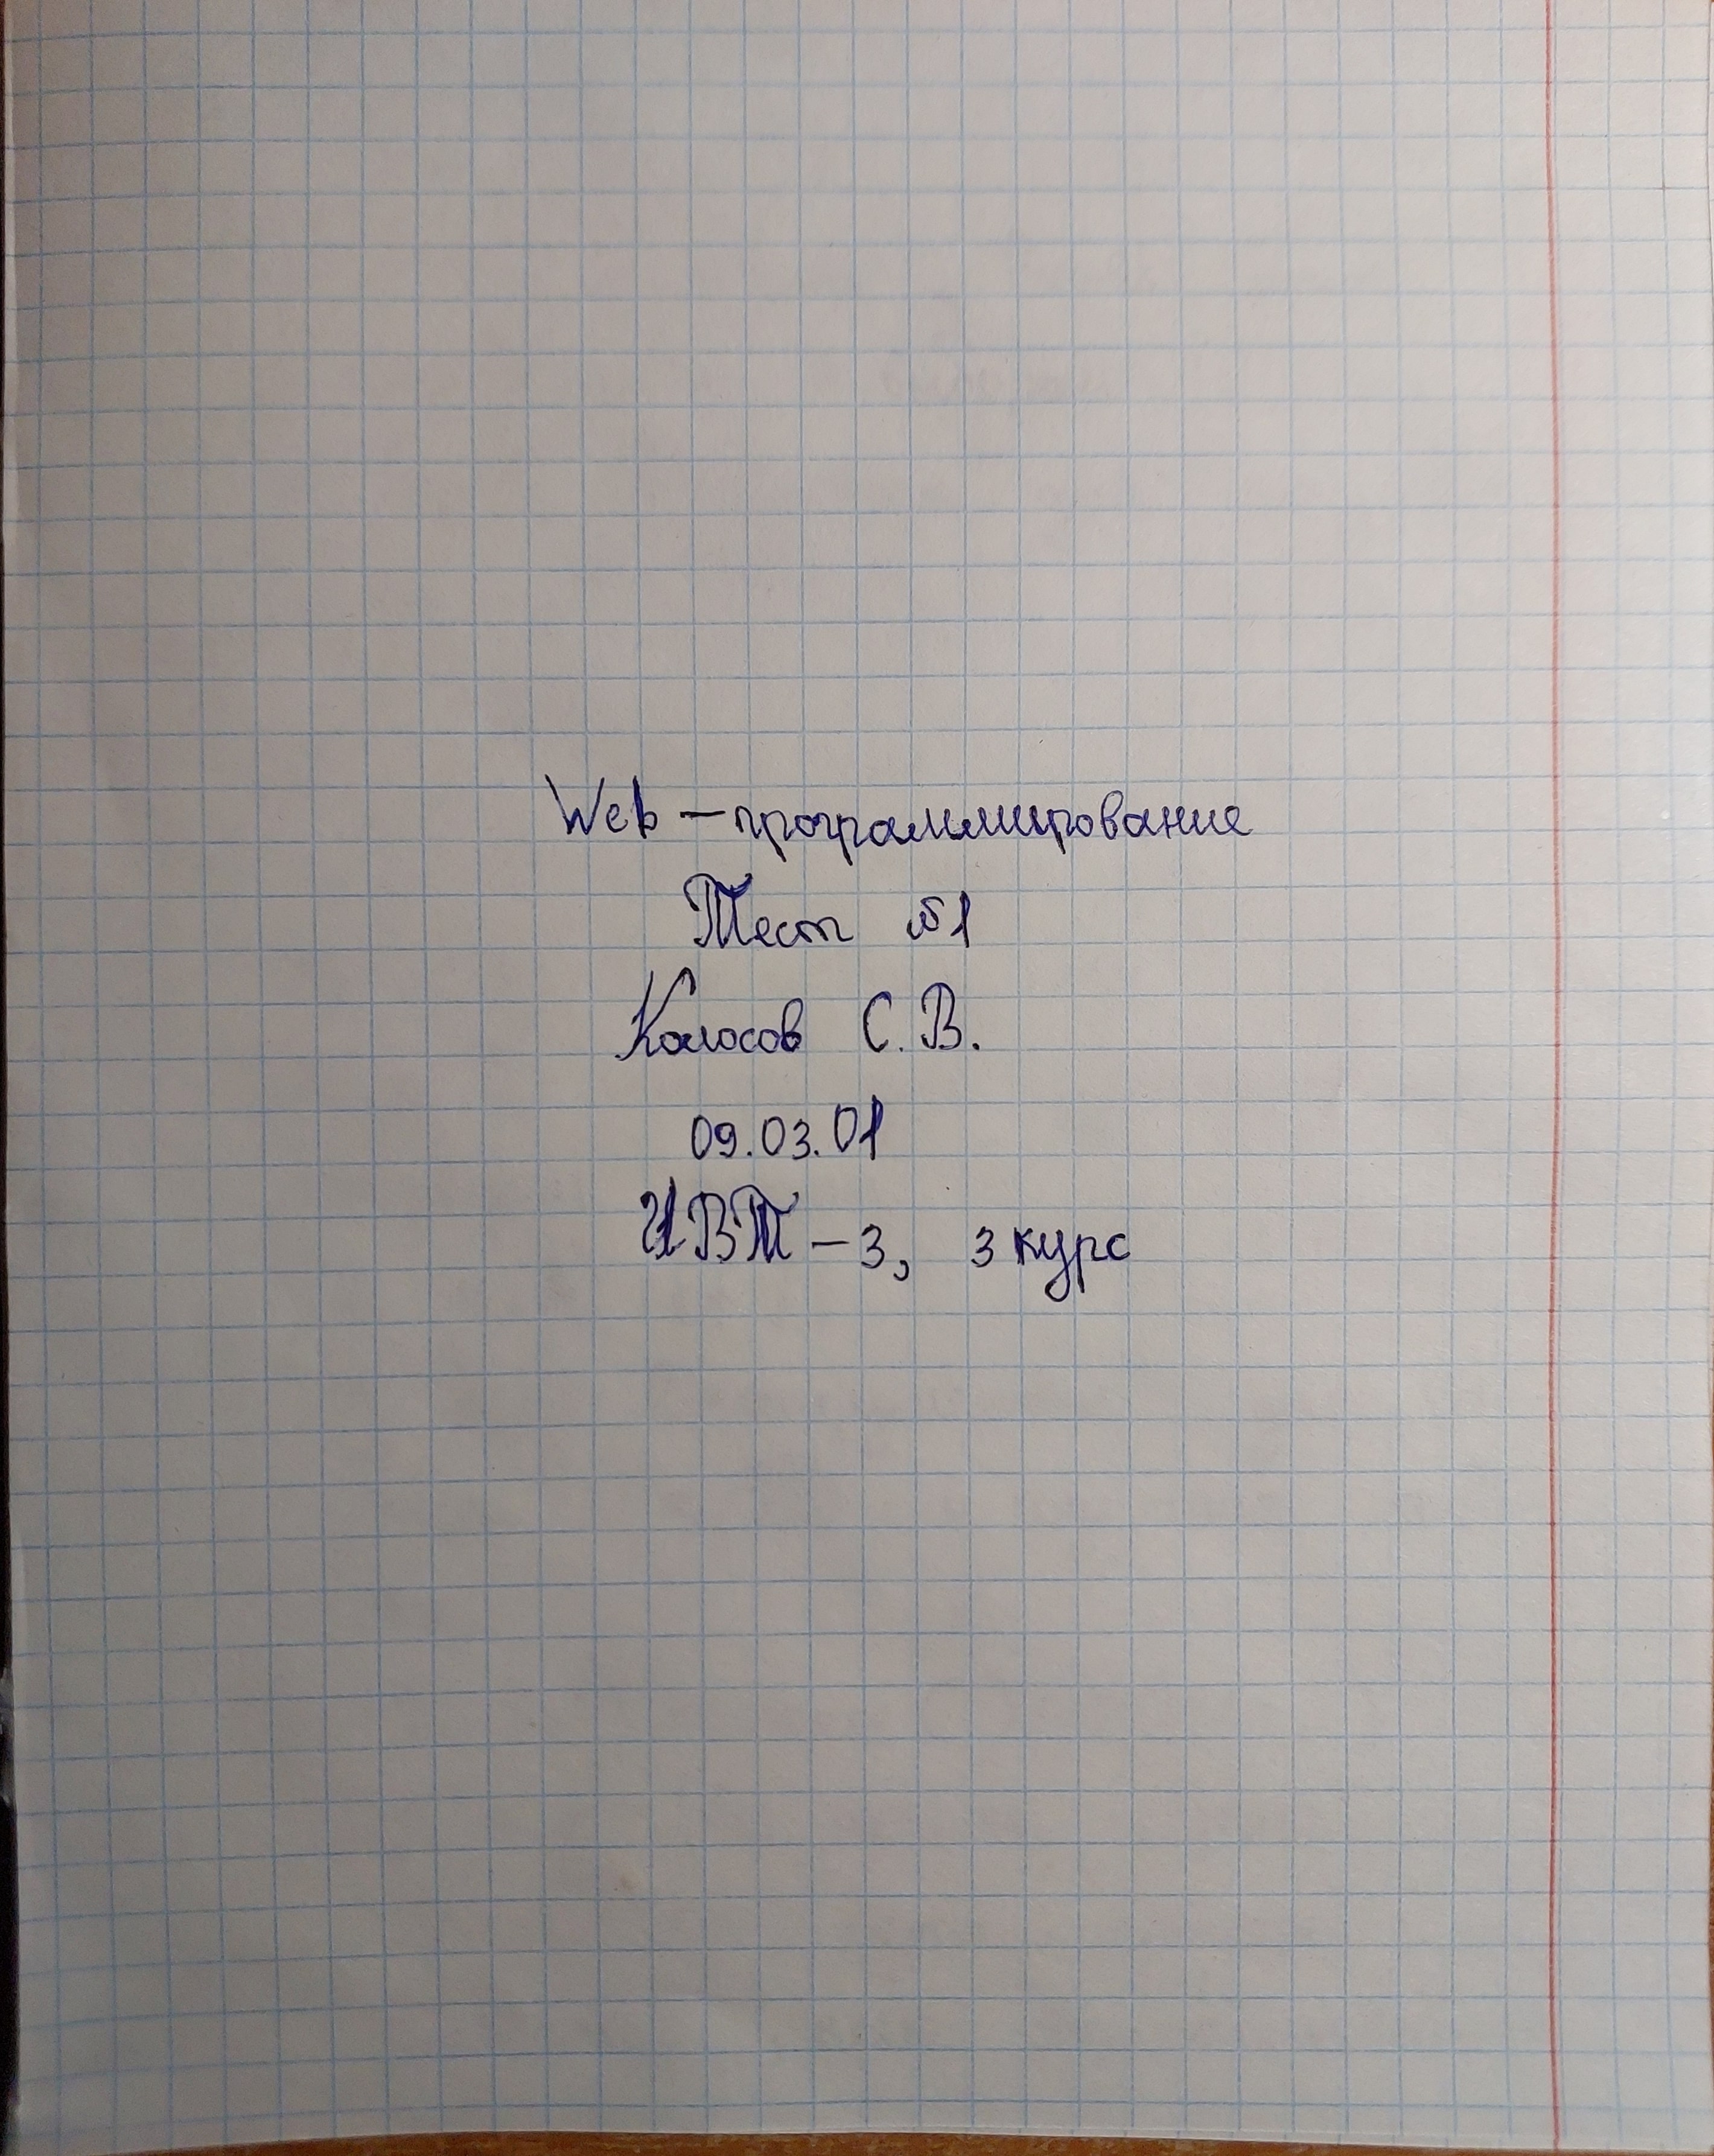 Web-программирование
Тест №1
Колосов С.В.
09.03.01
ИВТ-3, 3 курс